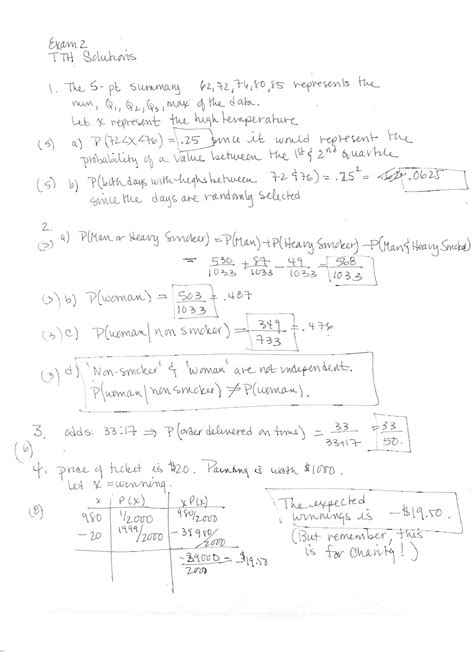 Exam 2
TTH Solutions
1. The 5-pt summary 62,72,76,80,85 represents the
min, Q1, Q2, Q3, max of the data.
Let x represent the high temperature
(5) a) P(72<X<76) = .25 since it would represent the
probability of a value between the 1st & 2nd quartile
(5) b) P(both days with highs between 72 & 76) = .25² = .0625
since the days are randomly selected
2.
(3) a) P(Man or Heavy Smoker) = P(Man) + P(Heavy Smoker) - P(Man & Heavy Smoker)
= 530/1033 + 87/1033 - 49/1033 = 568/1033
(3) b) P(woman) = 503/1033 = .487
(3) c) P(woman/non smoker) = 349/733 = .476
(3) d) 'Non-smoker' & 'woman' are not independent.
P(woman/nonsmoker) ≠ P(woman).
3. odds: 33:17 ⇒ P(order delivered on time) = 33/33+17 = 33/50.
(6)
4. price of ticket is $20. Painting is worth $1000.
Let x = winning.
(8) x P(x) xP(x)
980 1/2000 980/2000
-20 1999/2000 -39980/2000
-39000/2000 = -$19.50
The expected
winnings is -$19.50.
(But remember, this
is for charity!)